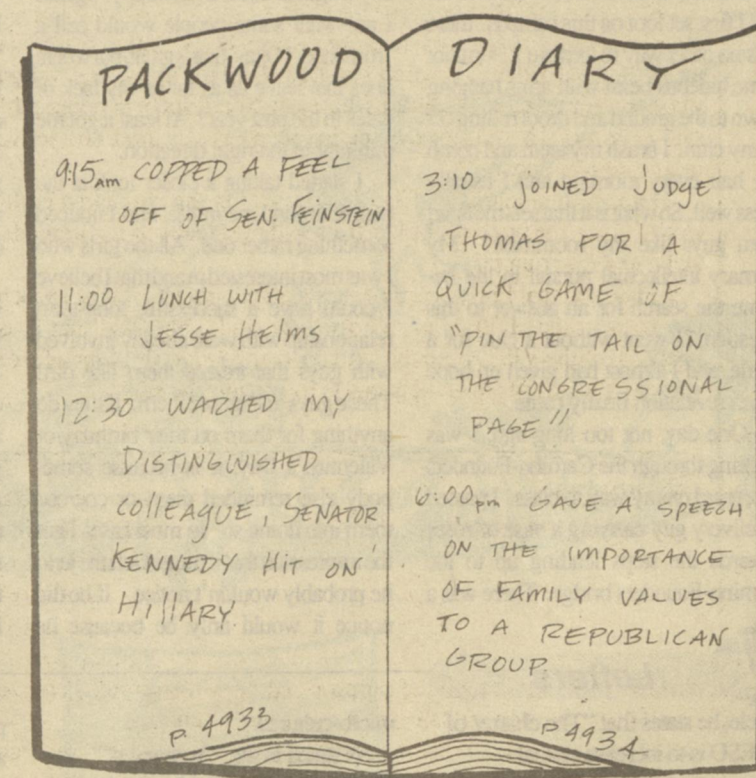 PACKWOOD DIARY
9:15am COPPED A FEEL
OFF OF SEN. FEINSTEIN
11:00 LUNCH WITH
JESSE HELMS
12:30 WATCHED MY
DISTINGUISHED
COLLEAGUE, SENATOR
KENNEDY HIT ON
HILLARY.
P. 4933
3:10 JOINED JUDGE
THOMAS FOR A
QUICK GAME OF
"PIN THE TAIL ON
THE CONGRESSIONAL
PAGE"
6:00pm GAVE A SPEECH
ON THE IMPORTANCE
OF FAMILY VALUES
TO A REPUBLICAN
GROUP.
P 4934